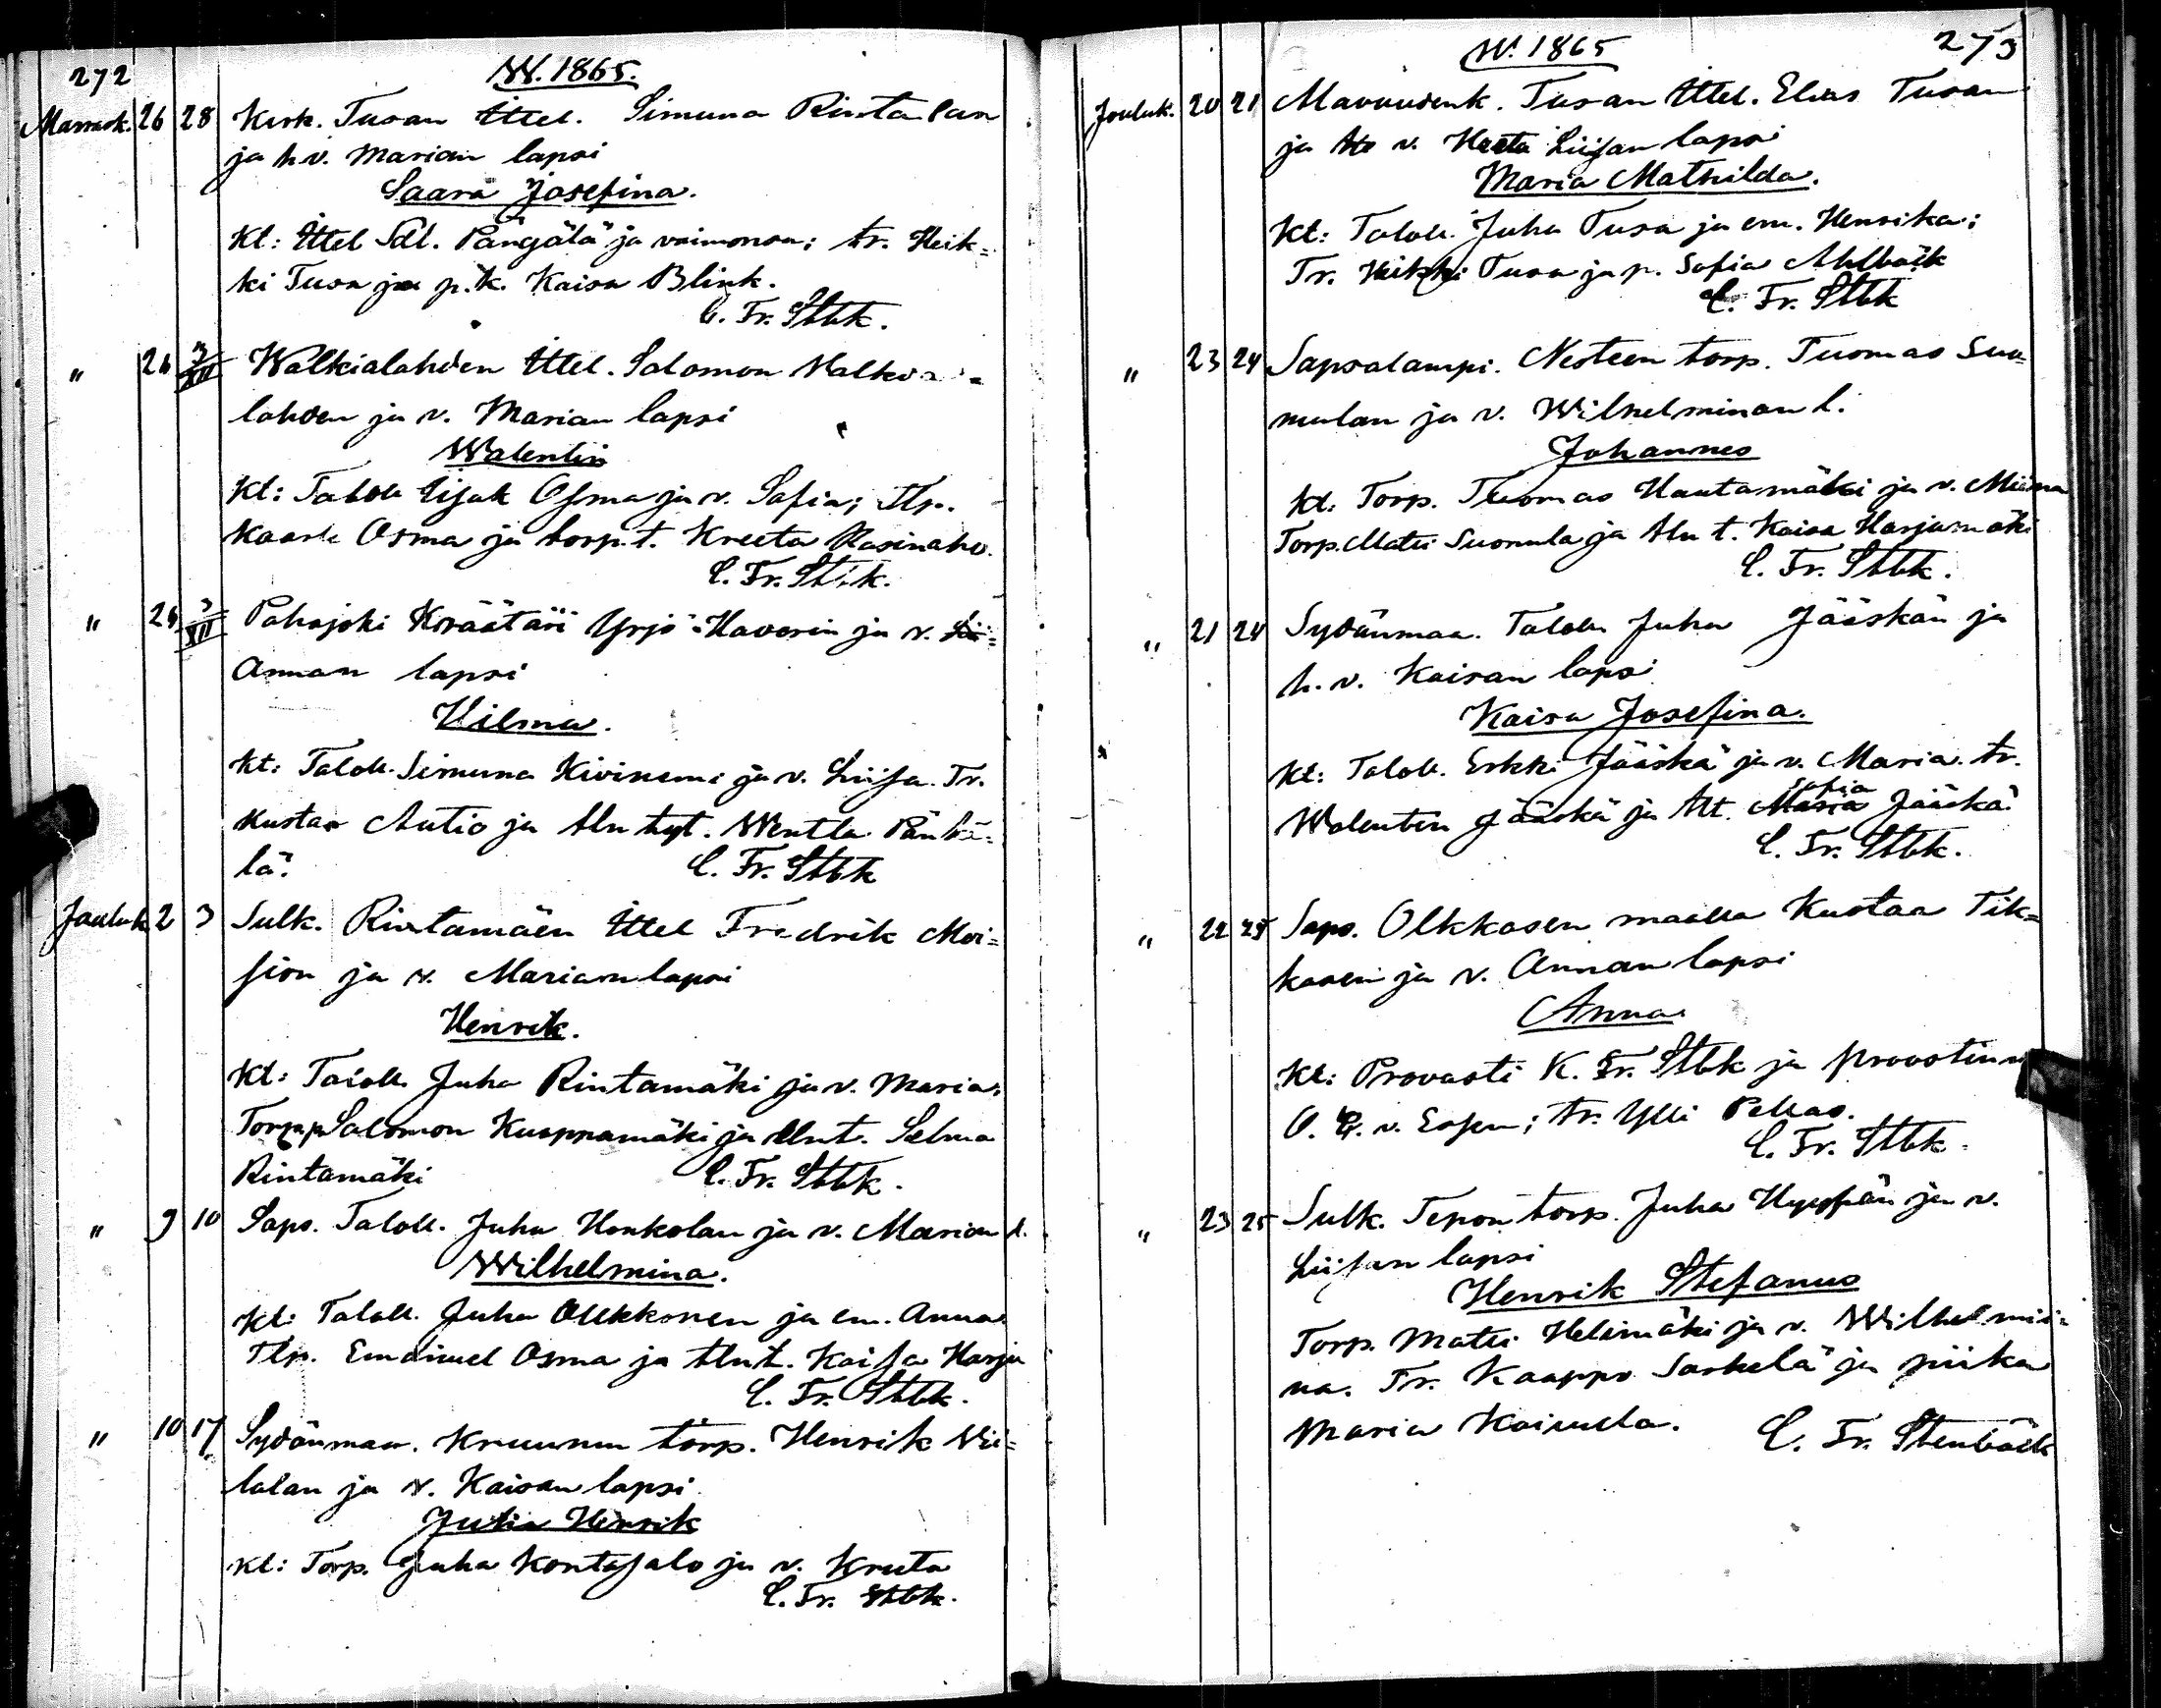 272
W. 1865.
Marrask. 26 28 Kirk. Tusan Ittel. Simuna Rintalan
ja h.v. Marian lapsi
Saara Josefina.
Kt: Ittel Sal. Pängälä ja vaimonsa; tr. Heik=
ki Tusa ja p.k. Kaisa Blink.
C. Fr. Stbk.
" 26 3/XII Walkialahden Ittel. Salomon
lahden ja v. Marian lapsi
Walentin
Kt: Talol. Iisak Osma ja v. Sofia; Tlp.
Kaarle Osma ja torp.t. Kreeta Kasinaho.
C. Fr. Stbk.
" 26 3/XII Pahajoki Kräätäri Yrjö Haverin ja v.
Annan lapsi
Vilma.
Kt: Talol. Simuna Kiviniemi ja v. Liisa. Tr.
Kustaa Autio ja tln tyt. Wentla
lä.
C. Fr. Stbk
Jouluk. 2 3 Sulk. Rintamäen Ittel Fredrik Moi=
sion ja v. Marian lapsi
Henrik.
Kt: Talol. Juha Rintamäki ja v. Maria.
Torpp. Salomon Kuoppamäki ja tln t. Selma
Rintamäki
C. Fr. Stbk.
" 9 10 Saps. Talol. Juha Honkolan ja v. Marian l.
Wilhelmina.
Kt: Talol. Juha Olkkonen ja em. Anna
Tlp. Emanuel Osma ja tln t. Kaisa Harju
C. Fr. Stbk.
" 10 17 Sydänmaa. Kruunun torp. Henrik Vii=
talan ja v. Kaisan lapsi
Juha Henrik
Kt: Torp. Juha Kontasalo ja v. Kreeta
C. Fr. Stbk.
W. 1865
273
Jouluk. 20 21 Mavuudenk. Tusan Ittel. Elias Tusan
ja v. Liisan lapsi
Maria Mathilda.
Kt: Talol. Juha Tusa ja em. Henrika;
Tr. Heikki Tusa ja p. Sofia Ahlbäck
C. Fr. Stbk
" 23 24 Sapsalampi. Nesteen torp. Tuomas Suo=
mulan ja v. Wilhelminan l.
Johannes
Kt. Torp. Tuomas Hautamäki ja v. Miina
Torp. Matti Suomula ja tln t. Kaisa Harjumäki
C. Fr. Stbk.
" 21 24 Sydänmaa. Talol. Juha Jääskän ja
h. v. Kaisan lapsi
Kaisa Josefina.
Kt: Talol. Erkki Jääskä ja v. Maria. tr.
Sofia
Walentin Jääskä ja tlt. Maria Jääskä
C. Fr. Stbk.
" 22 25 Saps. Olkkosen maalla Kustaa Tik=
kasen ja v. Annan lapsi
Anna
Kt: Provasti K. Fr. Stbk ja provstinn
O. G. v. Essen; tr. Ylli Pellas.
C. Fr. Stbk.
" 23 25 Sulk. Tepon torp. Juha Hyypän ja v.
Liisan lapsi
Henrik Stefanus
Torp. Matti Helimäki ja v. Wilhelmii=
na. Tr. Kaappo Saskelä ja piika
Maria Koivula.
C. Fr. Stenbäck